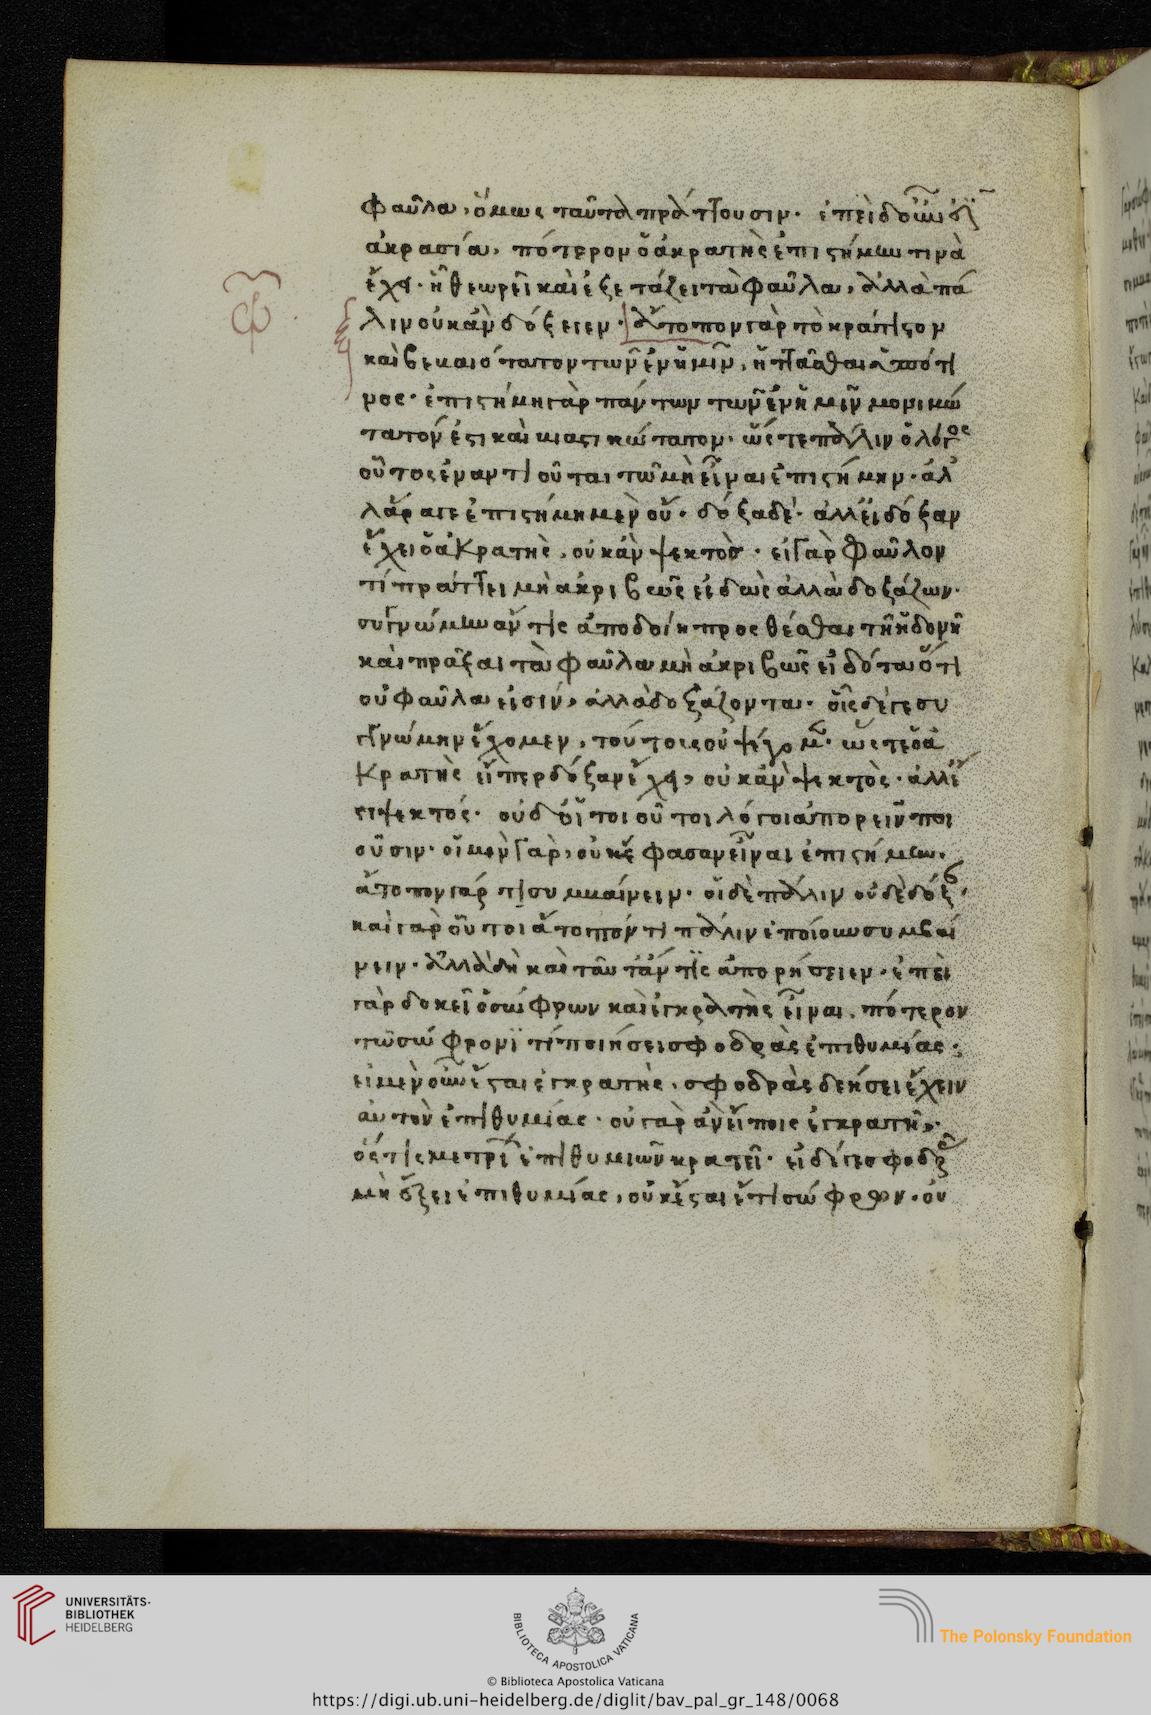 φαῦλα, ὅμως ταῦτα πράττουσιν. ἐπεὶ δ' οὖν ἐστὶν
ἀκρασία, πότερον ὁ ἀκρατὴς ἐπιστήμην τινὰ
ἔχει. ἧ θεωρεῖ καὶ ἐξετάζει τὰ φαῦλα, ἀλλὰ πά
λιν οὐκ ἂν δόξειεν. ἄτοπον γὰρ τὸ κράτιστον
καὶ βεβαιότατον τῶν ἐν ἡμῖν, ἡττᾶσθαι ὑπό τι
νος. ἐπιστήμη γὰρ πάντων τῶν ἐν ἡμῖν μονιμώ
τατόν ἐστι καὶ βιαστικώτατον. ὥστε πάλιν ὁ λόγος
οὗτος ἐναντιοῦται τῶ μὴ εἶναι ἐπιστήμην. ἀλ
λ' ἆρά γε ἐπιστήμη μὲν οὔ. δόξα δέ. ἀλλ' εἰ δόξαν
ἔχει ὁ ἀκρατὴς, οὐκ ἂν ψεκτὸς. εἰ γὰρ φαῦλόν
τι πράττει μὴ ἀκριβῶς εἰδὼς ἀλλὰ δοξάζων.
συγγνώμην ἄν τις ἀποδοίη προσθέσθαι τῆ ἡδονῆ
καὶ πρᾶξαι τὰ φαῦλα μὴ ἀκριβῶς εἰδότα ὅτι
οὐ φαῦλα εἰσίν, ἀλλὰ δοξάζοντα. οἷς δέ γε συ
γγνώμην ἔχομεν, τούτοις οὐ ψέγομεν. ὥστε ὁ ἀ
κρατὴς εἴπερ δόξαν ἔχει, οὐκ ἂν ψεκτὸς. ἀλλ' ἔ
στι ψεκτός. οὐ δή τοι οὗτοι λόγοι ἀπορεῖν ποι
οῦσιν. οἱ μὲν γὰρ, οὐκ ἔφασαν εἶναι ἐπιστήμην.
ἄτοπον γάρ τι συμβαίνειν. οἱ δὲ πάλιν οὐδὲ δόξαν.
καὶ γὰρ οὗτοι ἄτοπόν τι πάλιν ἐποίουν συμβαί
νειν. ἀλλὰ δὴ καὶ ταῦτ' ἄν τις ἀπορήσειεν. ἐπεὶ
γὰρ δοκεῖ ὁ σώφρων καὶ ἐγκρατὴς εἶναι, πότερον
τῶ σώφρονί τι ποιήσει σφοδρὰς ἐπιθυμίας.
εἰ μὲν οὖν ἔσται ἐγκρατὴς, σφοδρὰς δεήσει ἔχειν
αὐτὸν ἐπιθυμίας. οὐ γὰρ ἂν εἴποις ἐγκρατῆ,
ὅστις μετρίων ἐπιθυμιῶν κρατεῖ. εἰ δέ γε σφοδρὰς
μὴ ἕξει ἐπιθυμίας, οὐκ ἔσται ἔτι σώφρων. οὐ
UNIVERSITÄTS-
BIBLIOTHEK
HEIDELBERG
BIBLIOTECA APOSTOLICA VATICANA
The Polonsky Foundation
© Biblioteca Apostolica Vaticana
https://digi.ub.uni-heidelberg.de/diglit/bav_pal_gr_148/0068